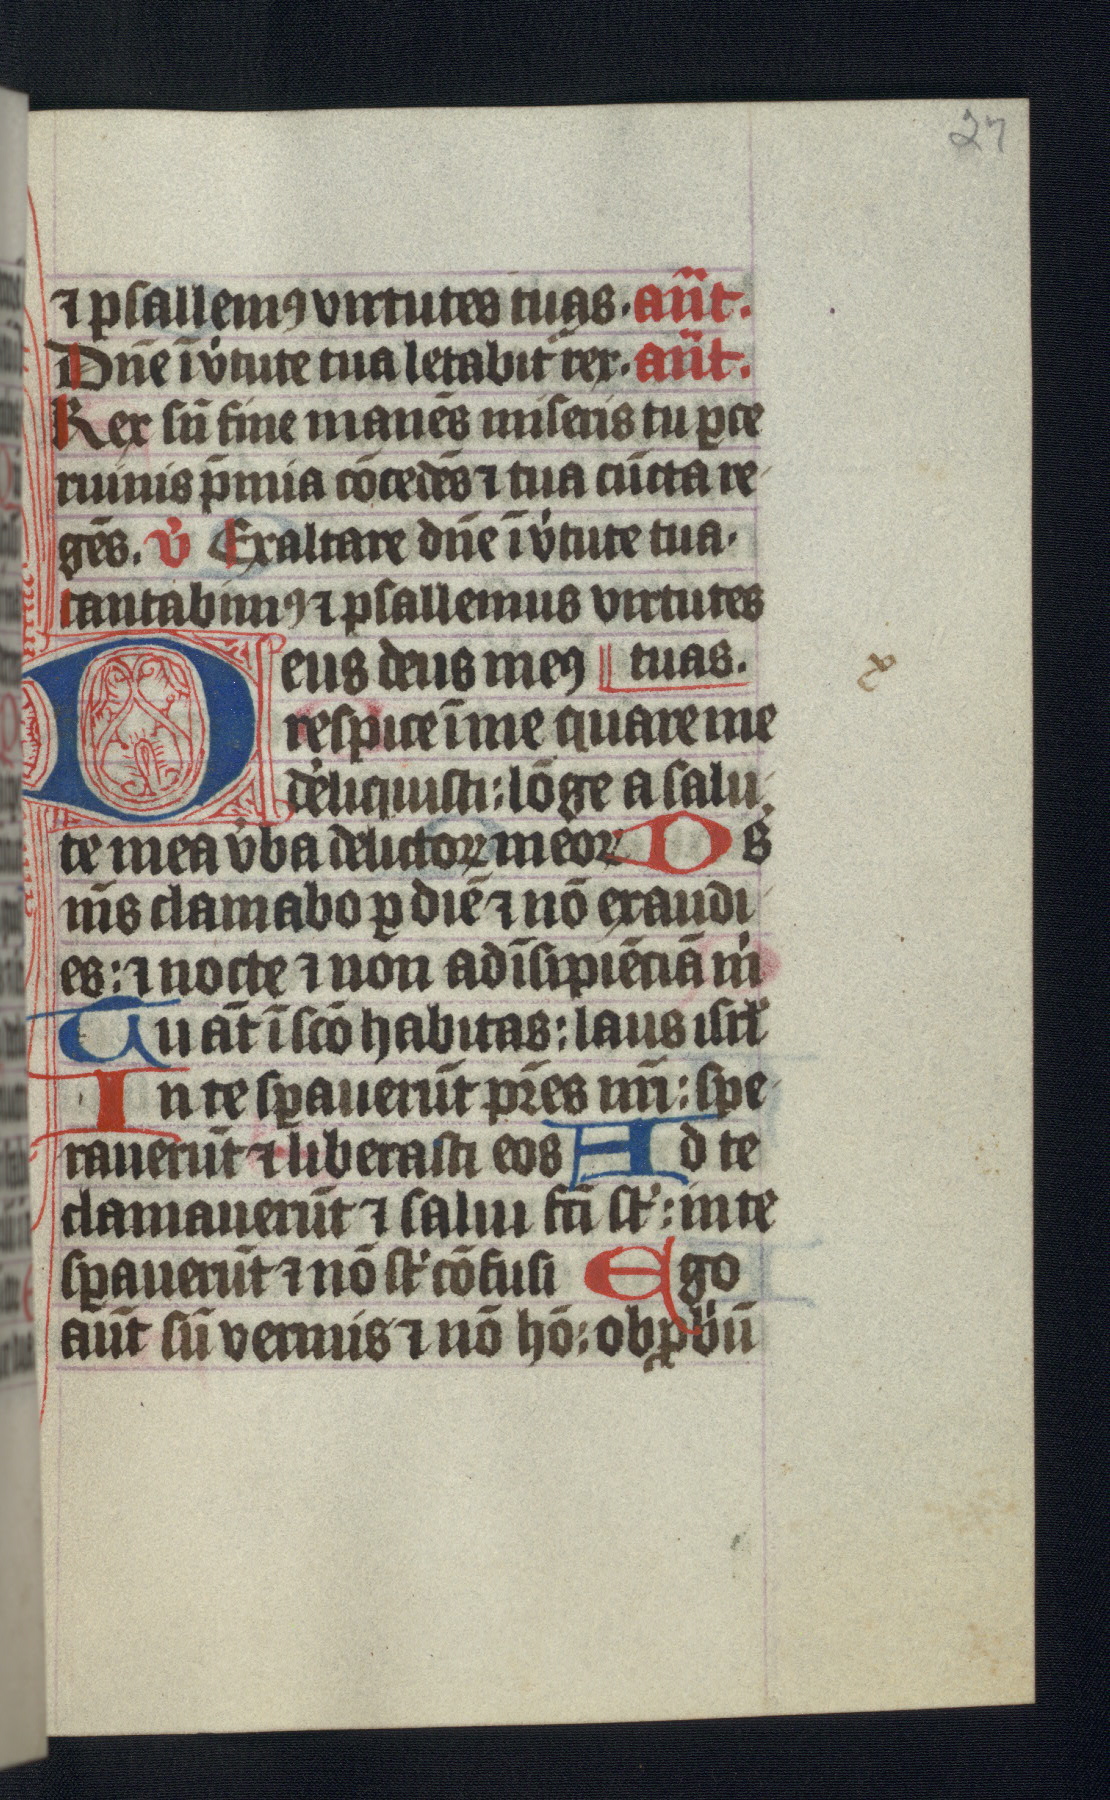 27
⁊ psallemꝰ virtutes tuas. an̄t.
Dn̄e ī v̓tute tua letabit᷑ rex. an̄t.
Rex su̅ fine manēs miseris tu ꝑce
ruinis p̄mia cōcedēs ⁊ tua cūcta re
gēs. v̓ Exaltare dn̄e ī v̓tute tua.
cantabimꝰ ⁊ psallemus virtutes
Deus deus meꝰ tuas.
respice ī me quare me
de̓liquisti: lōge a salu
te mea v̓ba delictoꝝ meoꝝ Ds̓
m̄s clamabo ꝑ diē ⁊ nō exaudi
es: ⁊ nocte ⁊ non ad īsipiēciā m̓
Tu āt ī scō habitas: laus isrl̓
In te sꝑauerūt pr̄es nr̄i: spe
rauerūt ⁊ liberasti eos Ad te
clamauerūt ⁊ salui fc̄i st̓: in te
sꝑauerūt ⁊ nō st̓ cōfusi Ego
aūt sū vermis ⁊ nō hō: obꝓb̓ū